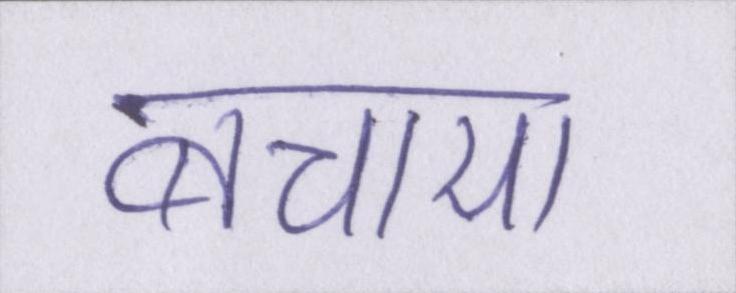 बचाया